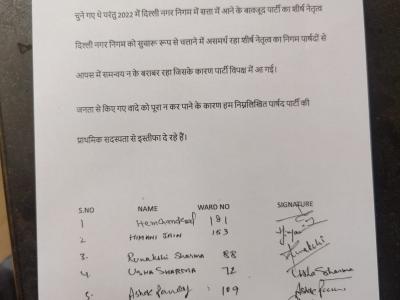 चुने गए थे परंतु 2022 में दिल्ली नगर निगम में सत्ता में आने के बावजूद पार्टी का शीर्ष नेतृत्व
दिल्ली नगर निगम को सुचारू रूप से चलाने में असमर्थ रहा शीर्ष नेतृत्व का निगम पार्षदों से
आपस में समन्वय न के बराबर रहा जिसके कारण पार्टी विपक्ष में आ गई।
जनता से किए गए वादे को पूरा न कर पाने के कारण हम निम्नलिखित पार्षद पार्टी की
प्राथमिक सदस्यता से इस्तीफा दे रहे हैं।
S.NO NAME WARD NO SIGNATURE
1 191
2 HIMANI JAIN 153
3. Runakshi Sharma 88
4. USHA SHARMA 72 Usha Sharma
5. Ashok Panday 109